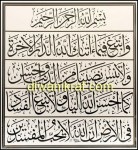 بسم الله الرحمن الرحيم
وابتغ فيما آتاك الله الدار الآخرة
ولا تنس نصيبك من الدنيا وأحسن
كما أحسن الله إليك ولا تبغ الفساد
في الأرض إن الله لا يحب المفسدين
www.diwanikrat.com